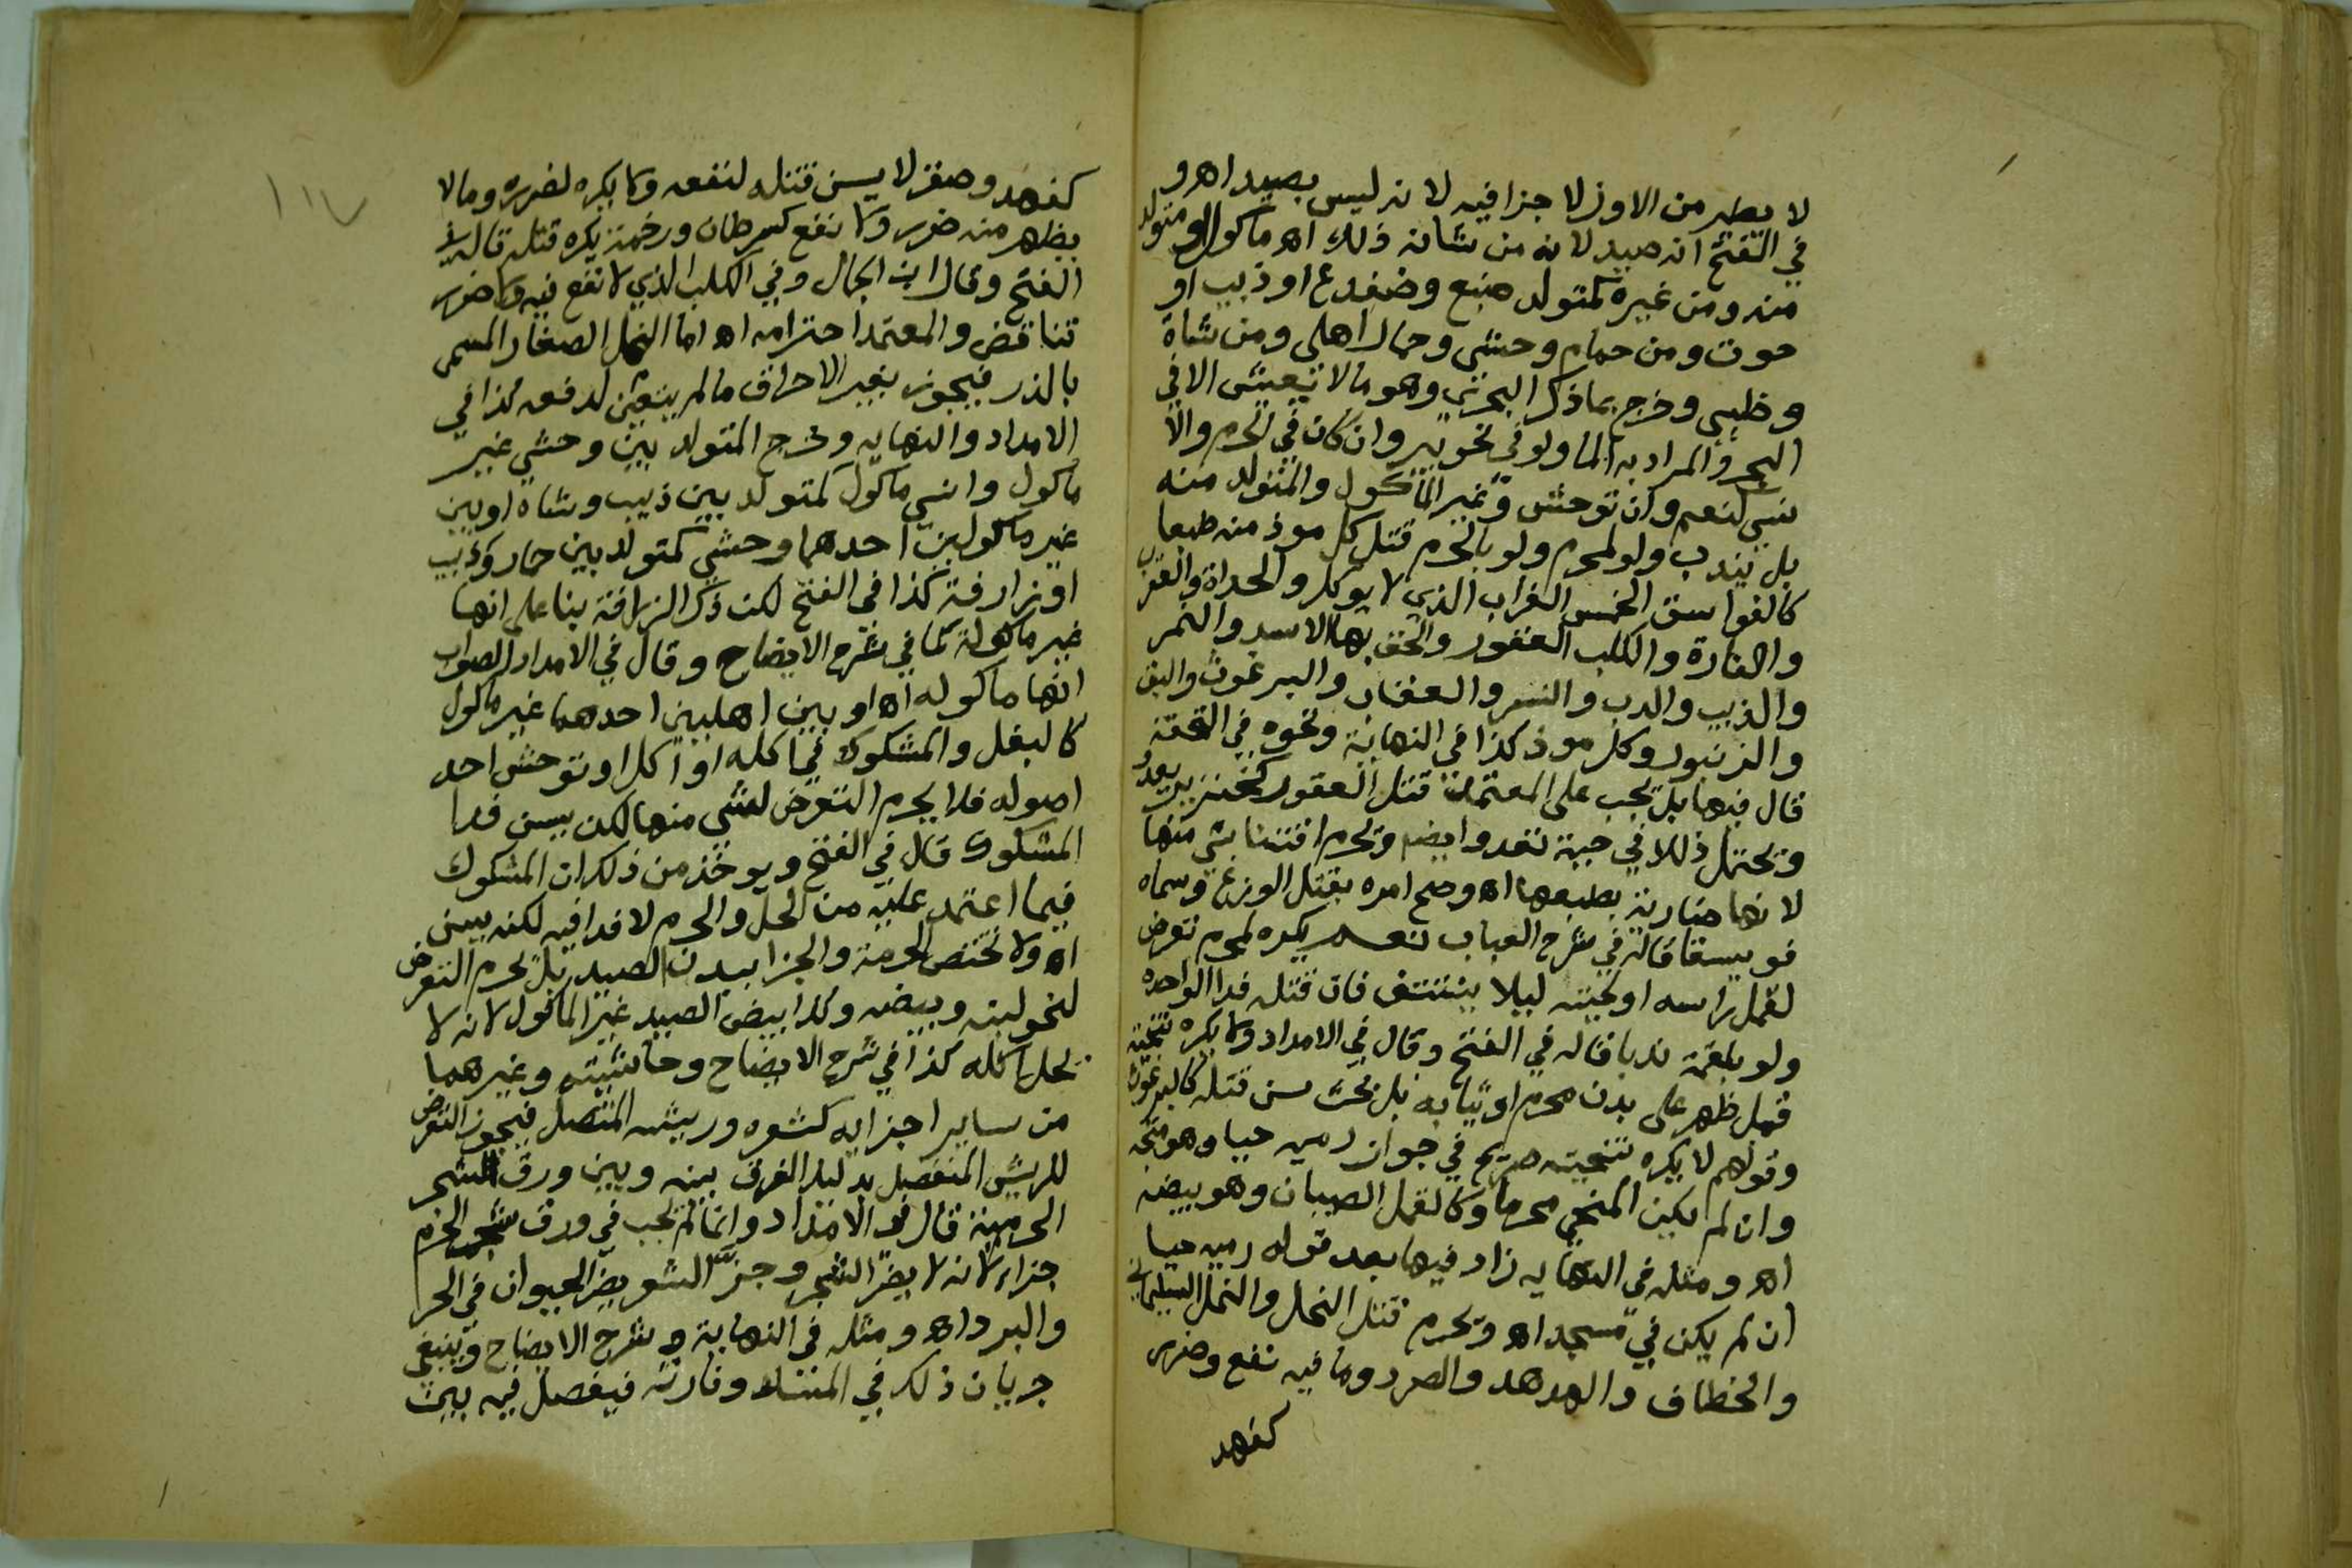 لا يطير من الاوز لا جزا فيه لانه ليس بصيد اهـ و
في الفتح انه صيد لانه من شانه ذلك اهـ ماكول او متولد
منه ومن غيره كمتولد ضبع وضفدع او ذيب او
حوت ومن حمام وحشي وحمار اهلي ومن شاة
وظبي وخرج بما ذكر البحري وهو ما لا يعيش الا في
البحر والمراد به الما ولو في نحو بير وان كان في الحرم والا
نسي كنعم وان توحش وغير الماكول والمتولد منه
بل يندب ولو لمحرم ولو بالحرم قتل كل موذ منه طبعا
كالفواسق الخمس الغراب الذي لا يوكل والحداة والعقرب
والفارة والكلب العقور والحق بها الاسد والنمر
والذيب والدب والنسر والعقاب والبرغوث والبق
والزنبور وكل موذ كذا في النهاية ونحوه في التحفة
قال فيها بل يجب على المعتمد قتل العقور كخنزير يعدو
ويحتمل ذلك في حية تعدو ايضا ويحرم اقتنا شي منها
لانها ضارية بطبعها اهـ وصح امره بقتل الوزغ وسماه
فويسقا قاله في شرح العباب نعم يكره لمحرم تعرض
لقمل راسه او لحيته ليلا ينتتف فان قتله فدا الواحدة
ولو بلقمة ندبا قاله في الفتح وقال في الامداد ولا يكره تنحية
قمل ظهر على بدن محرم او ثيابه بل بحث سن قتله كالبرغوث
وقولهم لا يكره تنحيته صريح في جواز رميه حيا وهو متجه
وان لم يكن المنحي محرما وكالقمل الصيبان وهو بيضه
اهـ ومثله في النهايه زاد فيها بعد قوله رميه حيا
ان لم يكن في مسجد اهـ ويحرم قتل النحل والنمل السليماني
والخطاف والهدهد والصرد وما فيه نفع وضرر
كفهد
١١٧
كفهد وصقر لا يسن قتله لنفعه ولا يكره لضرره وما لا
يظهر منه ضرر ولا نفع كسرطان ورخمة يكره قتله قاله في
الفتح وقال ابن الجمال وفي الكلب الذي لا نفع فيه ولا ضرر
تناقض والمعتمد احترامه اهـ اما النمل الصغار المسمى
بالذر فيجوز بغير الاحراق ما لم يتعين لدفعه كذا في
الامداد والنهايه وخرج المتولد بين وحشي غير
ماكول وانسي ماكول كمتولد بين ذيب وشاه او بين
غير ماكولين احدهما وحشي كمتولد بين حمار وذيب
او زرافة كذا في الفتح لكن ذكر الزرافة بنا على انها
غير ماكولة كما في شرح الايضاح وقال في الامداد الصواب
انها ماكوله اهـ او بين اهليين احدهما غير ماكول
كالبغل والمشكوك في اكله او اكل او توحش احد
اصوله فلا يحرم التعرض لشي منها لكن يسن فدا
المشكوك قال في الفتح ويوخذ من ذلك ان المشكوك
فيما اعتمد عليه من الحل والحرم لا فدا فيه لكنه يسن
اهـ ولا تختص الحرمة والجزا ببدن الصيد بل يحرم التعرض
لنحو لبنه وبيضه وكذا بيض الصيد غير الماكول لانه لا
يحل اكله كذا في شرح الايضاح وحاشيته وغيرهما
من ساير اجزايه كشعره وريشه المتصل فيجوز التعرض
للريش المنفصل بدليل الفرق بينه وبين ورق الشجر
الحرمية قال في الامداد وانما لم يجب في ورق شجر الحرم
جزاء لانه لا يضر الشجر وجزّ الشعر يضر الحيوان في الحر
والبرد اهـ ومثله في النهاية وشرح الايضاح وينبغي
جريان ذلك في المسك وفارته فيفصل فيه بين